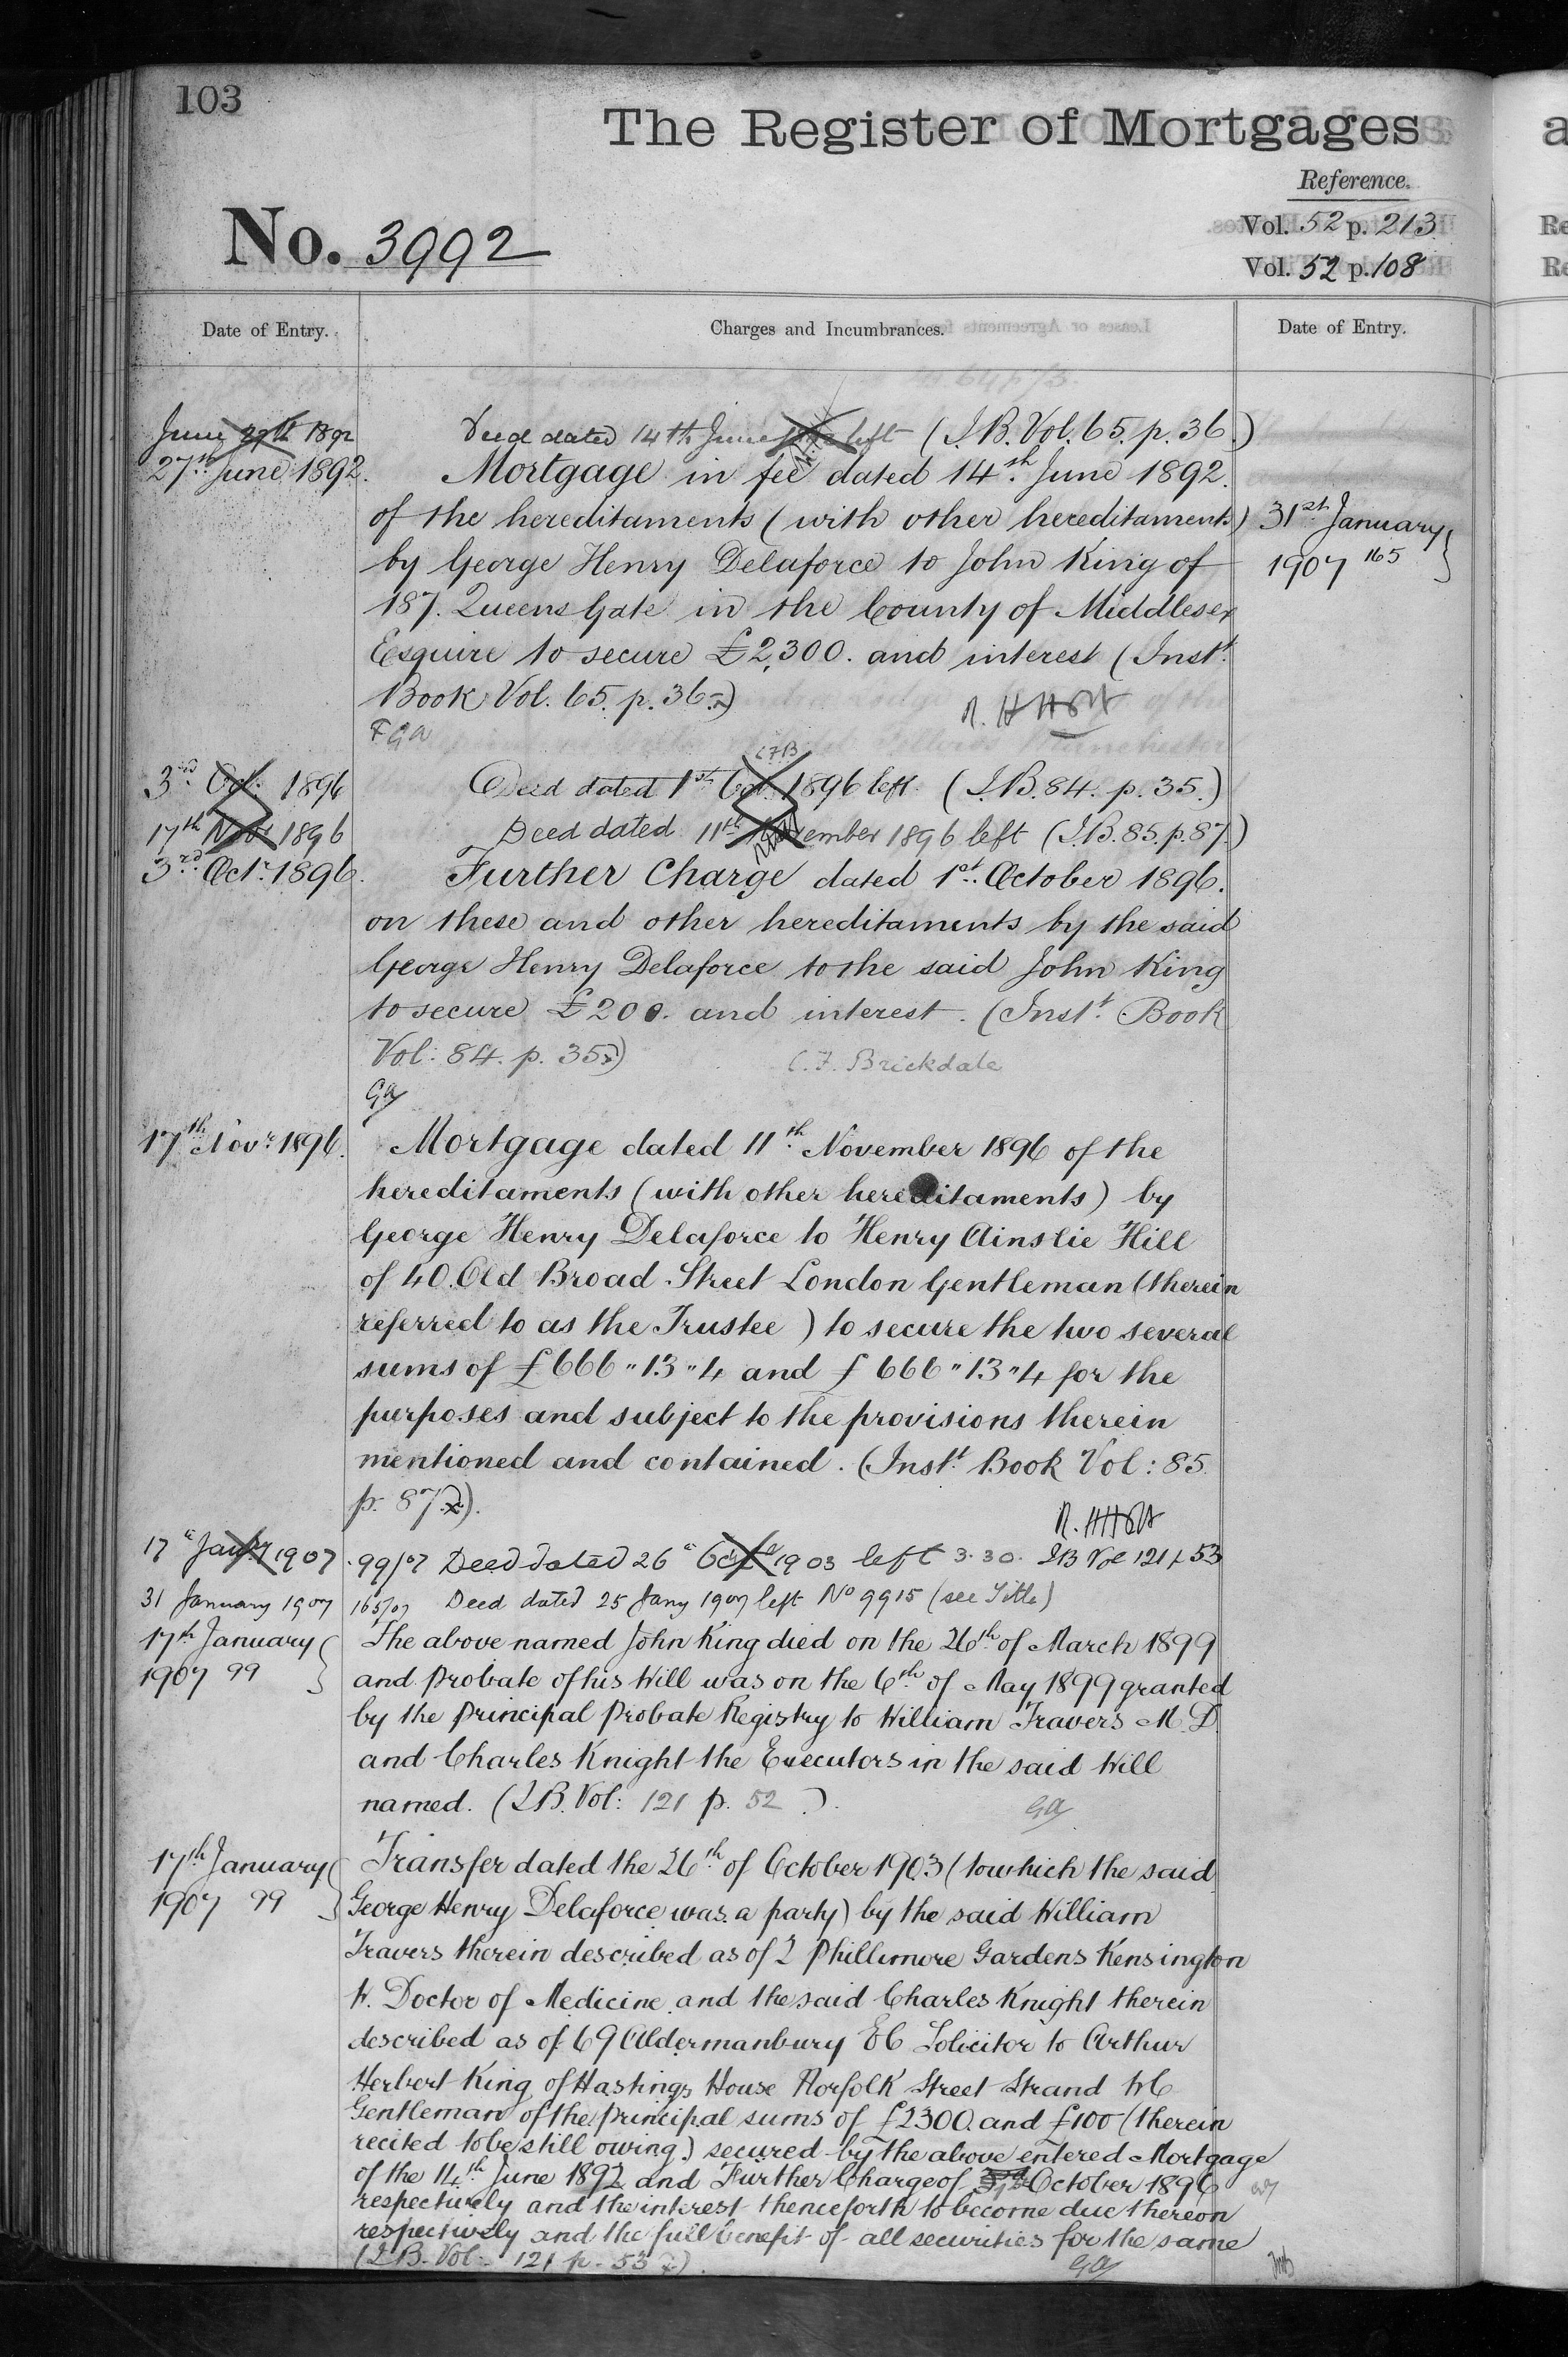 103
The Register of Mortgages
Reference.
No. 3992
Vol. 52 p. 213
Vol. 52 p. 108
Date of Entry.
Charges and Incumbrances.
Date of Entry.
June 27th 1892
Deed dated 14th June left (I.B. Vol. 65. p. 36.)
27th June 1892.
Mortgage in fee dated 14th June 1892.
of the hereditaments (with other hereditaments)
31st January
by George Henry Delaforce to John King of
1907 165
187. Queens Gate in the County of Middlesex
Esquire to secure £2,300. and interest (Inst.t
Book Vol. 65. p. 36.)
FGA
C F B
3rd Oct. 1896
Deed dated 1st Oct. 1896 left. (I.B. 84. p. 35.)
17th Nov. 1896
Deed dated 11th November 1896 left (I.B. 85. p. 87.)
3rd Oct.r 1896.
Further Charge dated 1st October 1896.
on these and other hereditaments by the said
George Henry Delaforce to the said John King
to secure £200. and interest. (Inst.t Book
Vol: 84. p. 35)
C.F. Brickdale
GA
17th Nov.r 1896.
Mortgage dated 11th November 1896 of the
hereditaments (with other hereditaments) by
George Henry Delaforce to Henry Ainslie Hill
of 40. Old Broad Street London Gentleman (therein
referred to as the Trustee) to secure the two several
sums of £666 " 13 " 4 and £666 " 13 " 4 for the
purposes and subject to the provisions therein
mentioned and contained. (Inst.t Book Vol: 85.
p. 87).
17th Jany 1907
99/07 Deed dated 26th Oct. 1903 left 3.30. IB Vol 121 p 53
31 January 1907
165/07 Deed dated 25 Jany 1907 left No 9915 (see Title)
17th January
1907 99
The above named John King died on the 26th of March 1899
and Probate of his Will was on the 6th of May 1899 granted
by the Principal Probate Registry to William Travers M.D.
and Charles Knight the Executors in the said Will
named. (I.B. Vol: 121 p. 52 ).
GA
17th January
1907 99
Transfer dated the 26th of October 1903 (to which the said
George Henry Delaforce was a party) by the said William
Travers therein described as of 2 Phillimore Gardens Kensington
W. Doctor of Medicine and the said Charles Knight therein
described as of 69 Aldermanbury EC Solicitor to Arthur
Herbert King of Hastings House Norfolk Street Strand WC
Gentleman of the principal sums of £2300. and £100 (therein
recited to be still owing) secured by the above entered Mortgage
of the 14th June 1892 and Further Charge of October 1896
respectively and the interest thenceforth to become due thereon
respectively and the full benefit of all securities for the same
(I.B. Vol: 121 p. 53)
GA